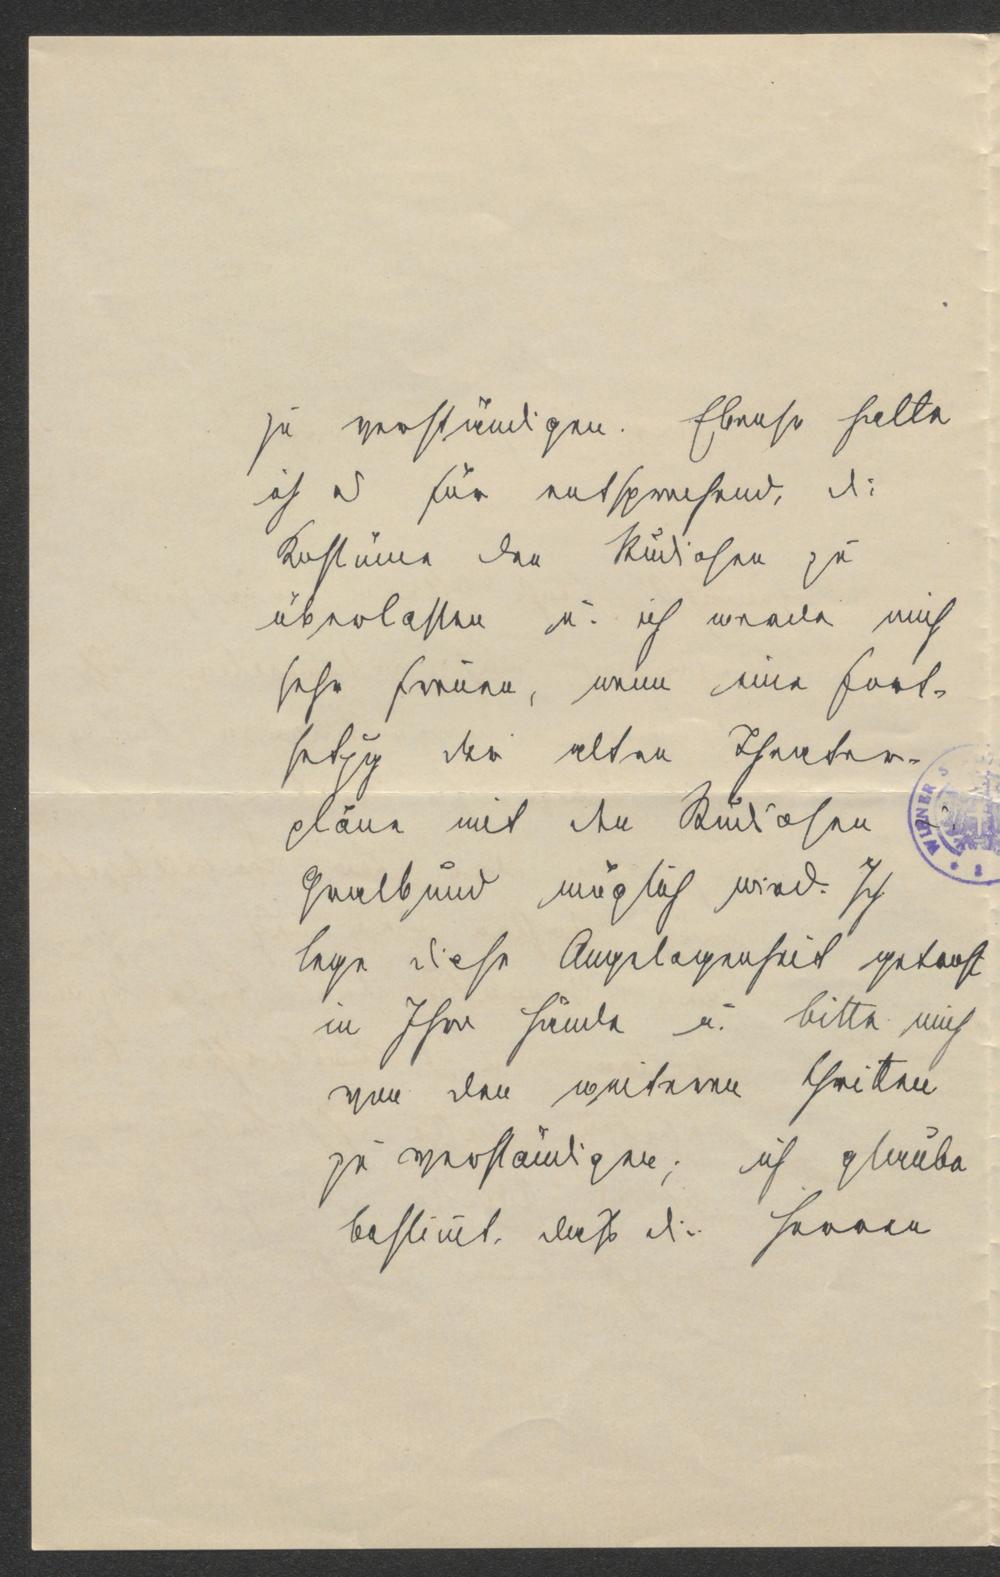 zu verständigen. Ebenso halte
ich es für entsprechend, die
Kostüme den
überlassen u. ich werde mich
sehr freuen, wenn eine Fort-
setzg der alten Theater-
pläne mit den
Gralbund möglich wird. Ich
lege diese Angelegenheit getrost
in Ihre Hände u. bitte mich
von den weiteren Schritten
zu verständigen; ich glaube
bestimt, daß die Herren
WIENER